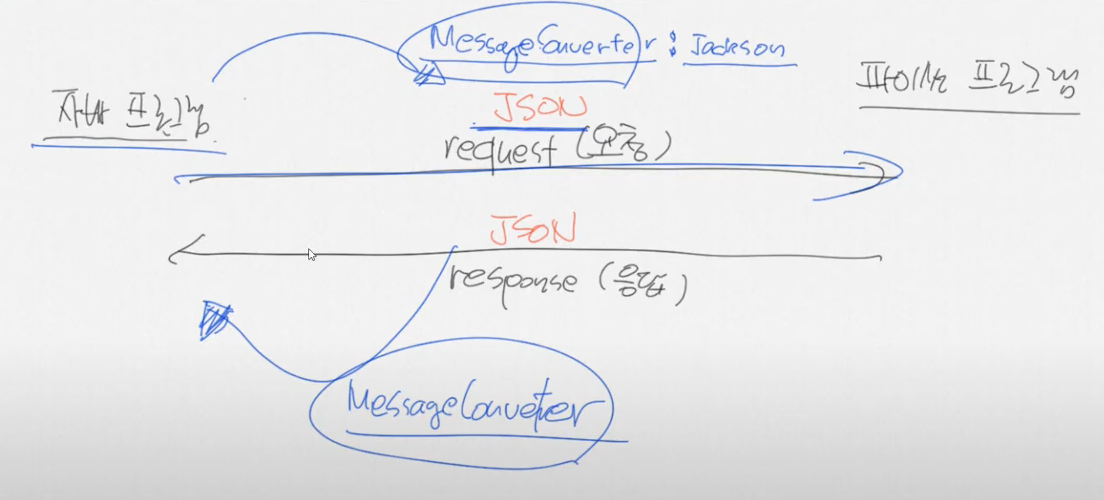 MessageConverter : Jackson
자바 프로그램
파이썬 프로그램
JSON
request (요청)
JSON
response (응답)
MessageConveter